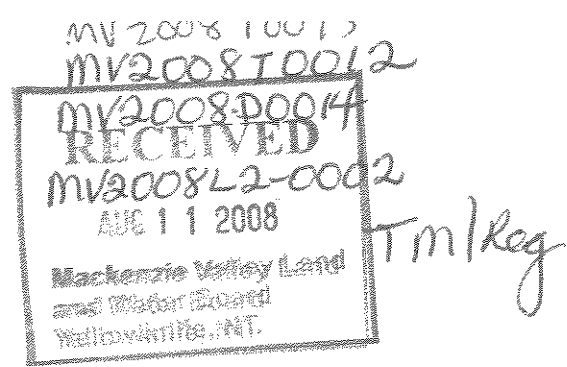 MV2008T0013
MV2008T0012
MV2008D0014
RECEIVED
MV2008L2-0002
AUG 11 2008
TM/Reg
Mackenzie Valley Land
and Water Board
Yellowknife, NT.